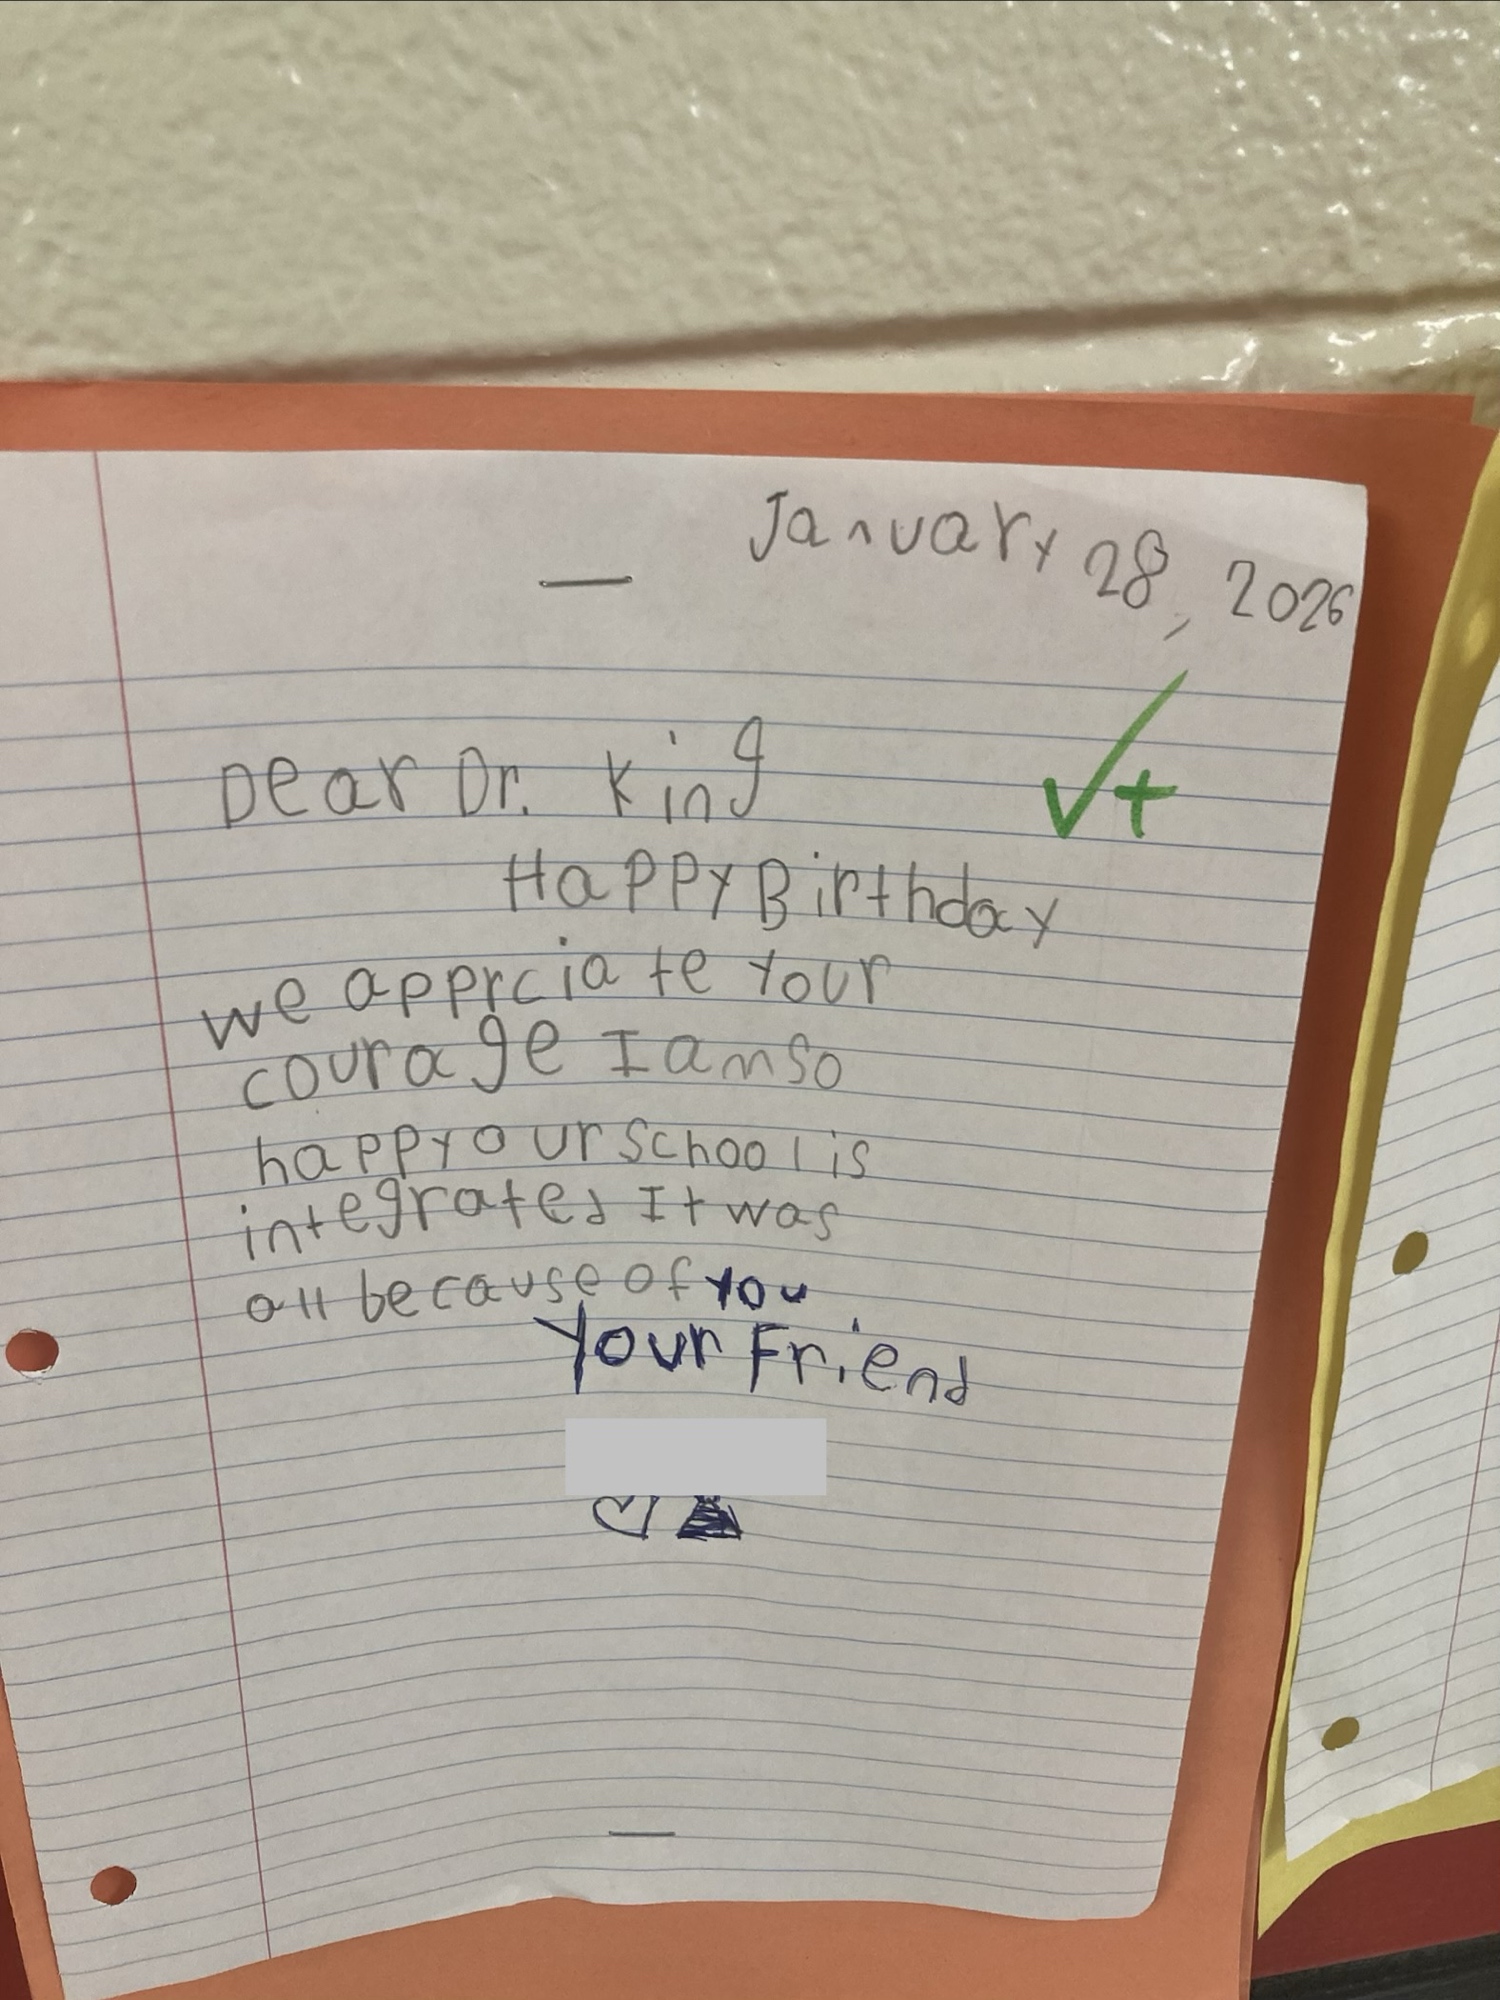 January 28, 2026
Dear Dr. King
Happy Birthday
we apprciate your
courage I am so
happy our school is
integrated It was
all because of you
Your Friend